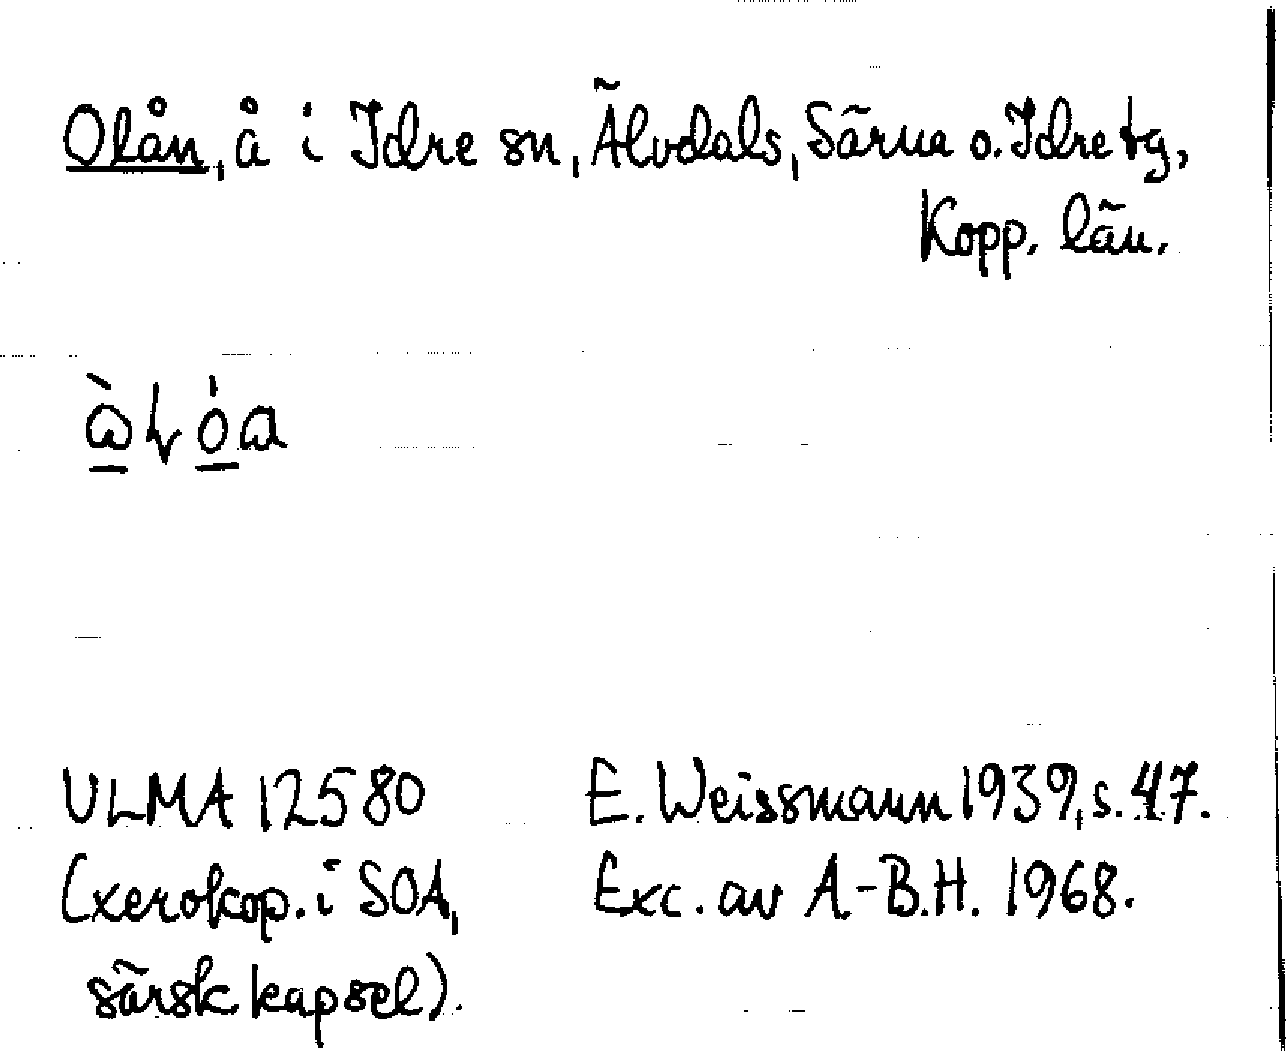 Olån, å i Idre sn, Älvdals, Särna o. Idre tg,
Kopp. län.
ULMA 12580
(xerokop. i SOA,
särsk. kapsel).
E. Weissmann 1939, s. 47.
Exc. av A-B.H. 1968.